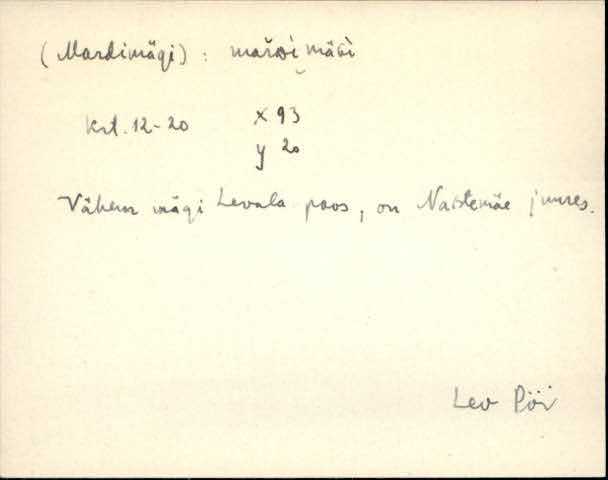 (Mardimägi) : mar̆Di mäGi
krt. 12-20 x 93
y 20
Vähem mägi Levala poos, on Naistemäe juures.
Lev Põi